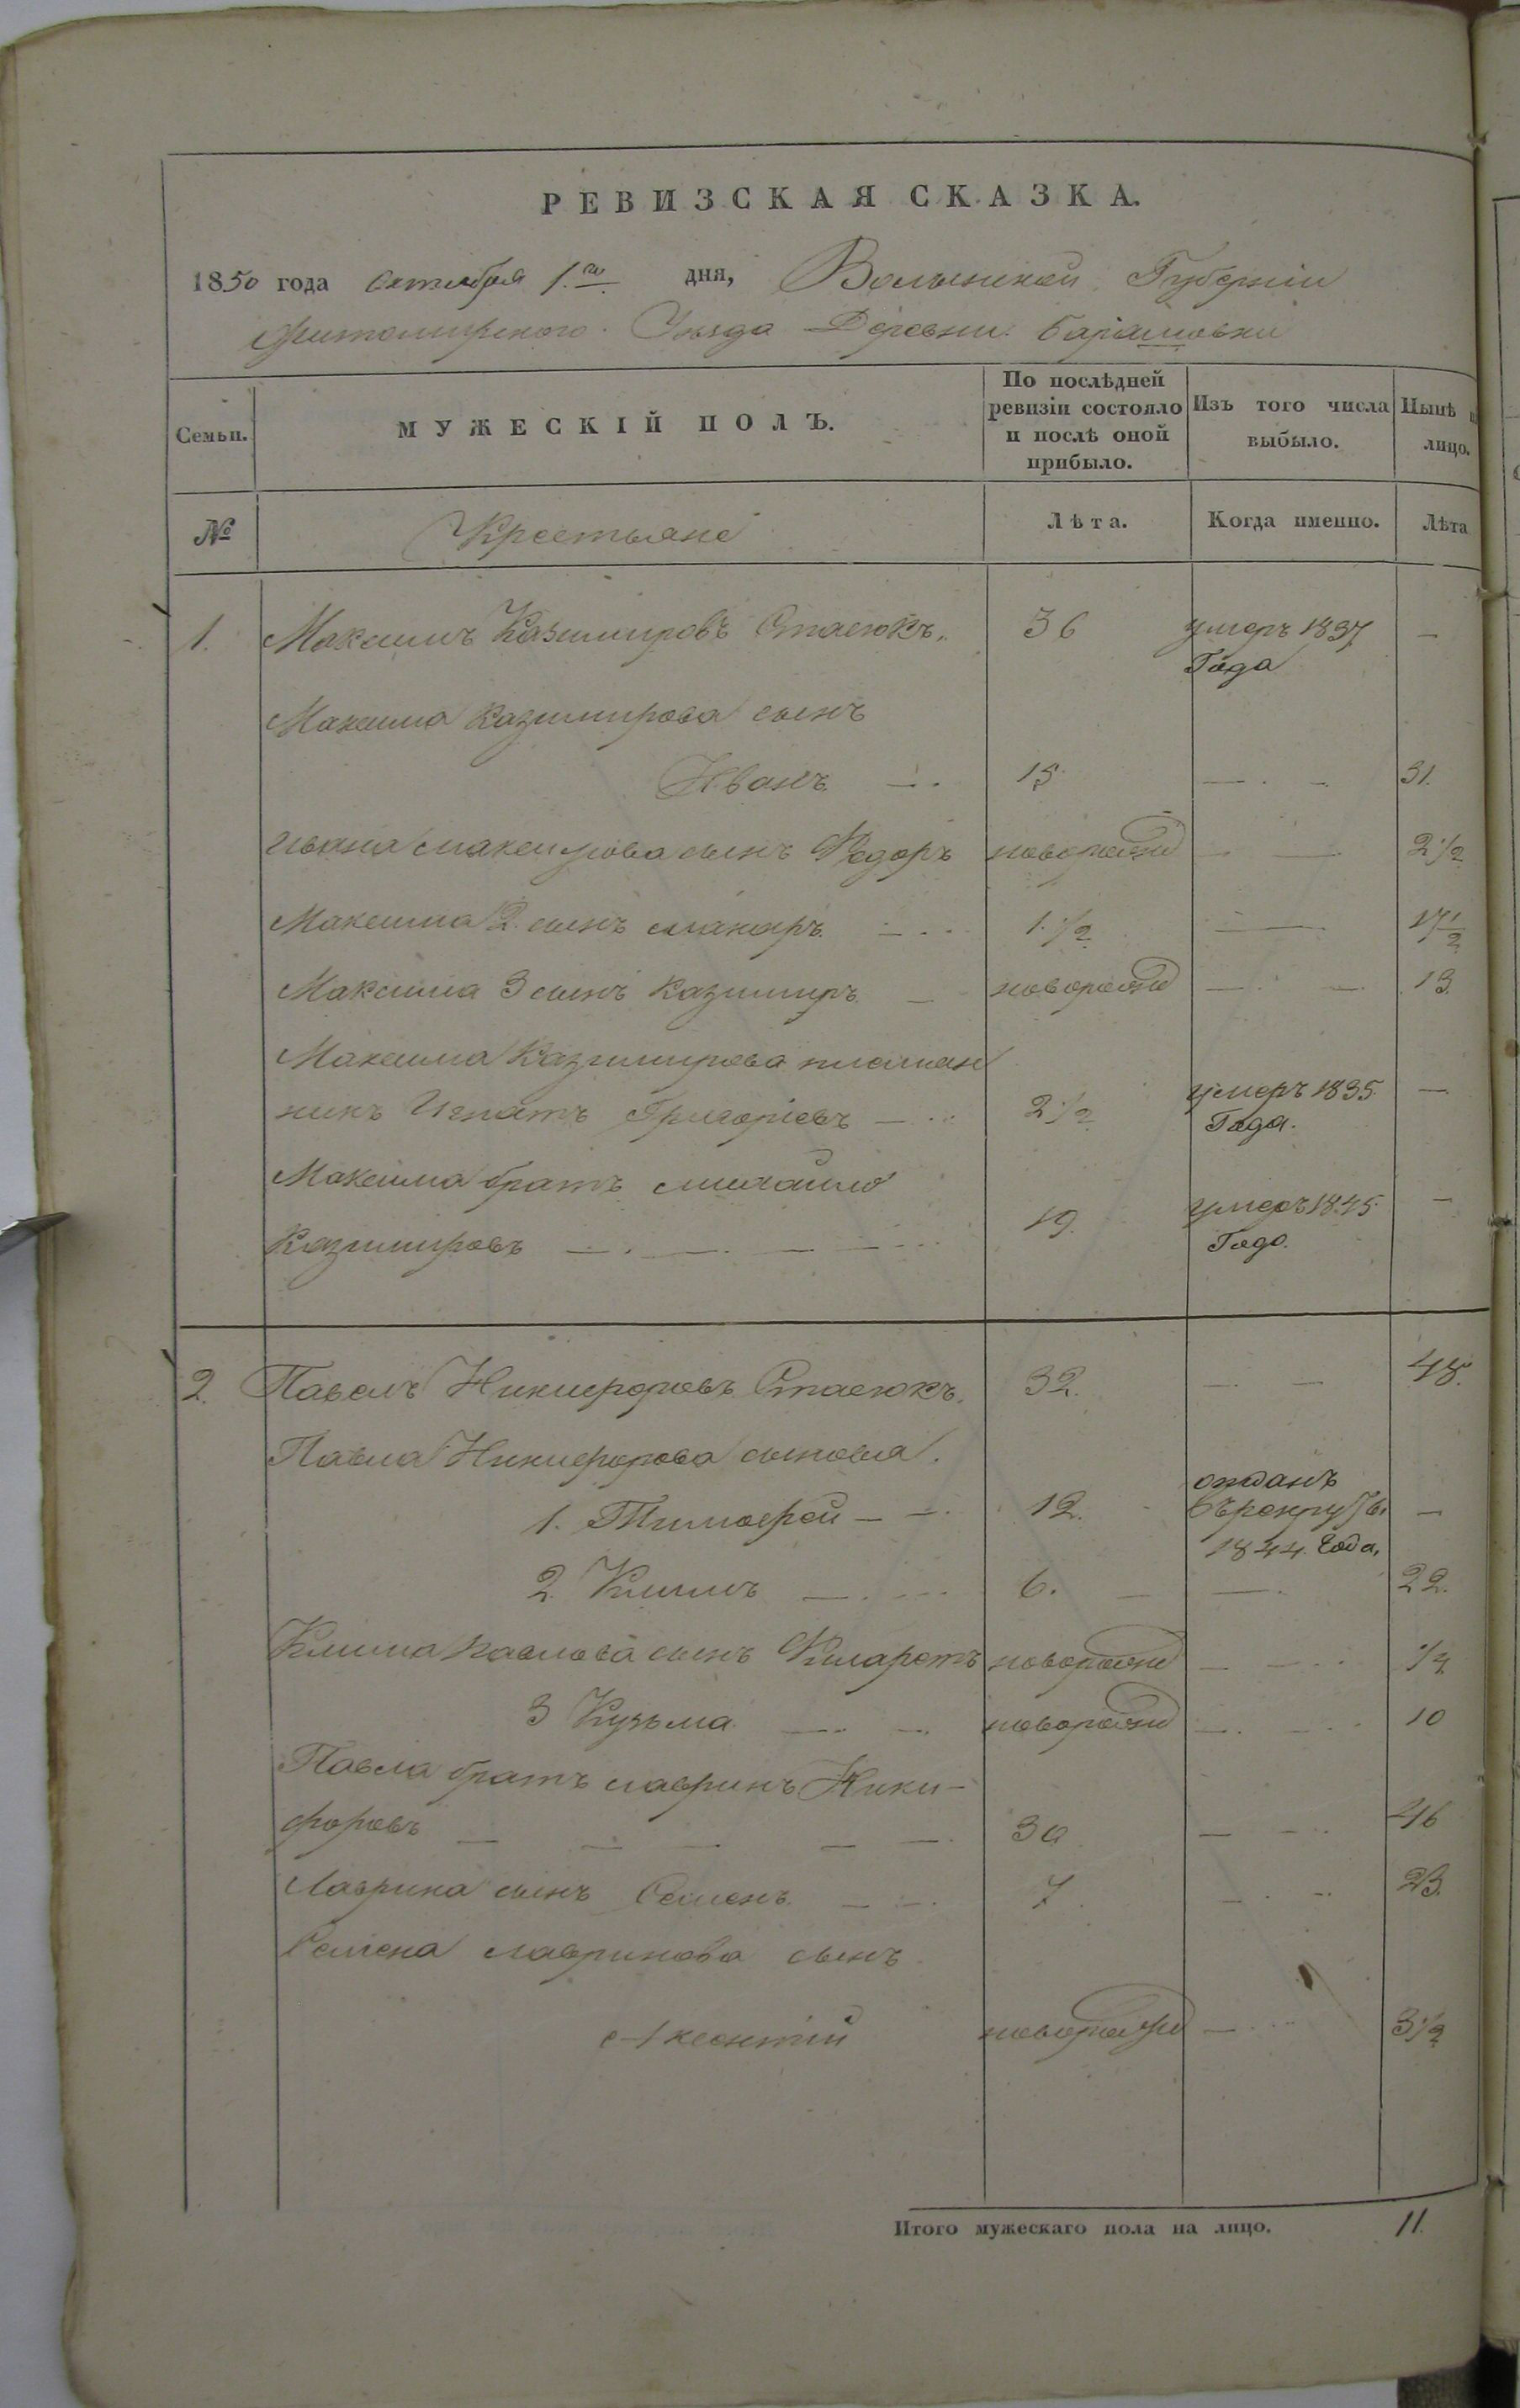 РЕВИЗСКАЯ СКАЗКА.
1850 года Октября 1го дня, Волынской Губерніи
Житомирского Уезда Деревни
Семьи. МУЖЕСКІЙ ПОЛЪ. По послѣдней ревизіи состояло и послѣ оной прибыло. Изъ того числа выбыло. Нынѣ лицо.
№ Крестьяне Лѣта. Когда именно. Лѣта
1. Максимъ Казимировъ Стасюкъ 36 умеръ 1837 Года —
Максима Казимирова сынъ
Иванъ 15 31.
Ивана Максимова сынъ Федоръ новорожд 2 1/2
Максима 2. сынъ Макаръ 1. 1/2 17 1/2
Максима 3 сынъ Казимиръ новорожд 13.
Максима Казимирова племян
никъ Игнатъ Григорьевъ 2 1/2 умеръ 1835 Года. —
Максима братъ Михайло
Казимировъ 19. умеръ 1845 Года. —
2. Павелъ Никифоровъ Стасюкъ. 32. 48.
Павла Никифорова сыновья.
1. Тимофей 12. отданъ въ рекруты 1844 года, —
2 Климъ 6. 22.
Клима Павлова сынъ Филаретъ новорожд
3 Кузьма новорожд 10
Павла братъ Лавринъ Ники-
форовъ 30 46
Лаврина сынъ Семенъ 7 23.
Семена Лавринова сынъ
новорожд 3 1/2
Итого мужескаго пола на лицо. 11.